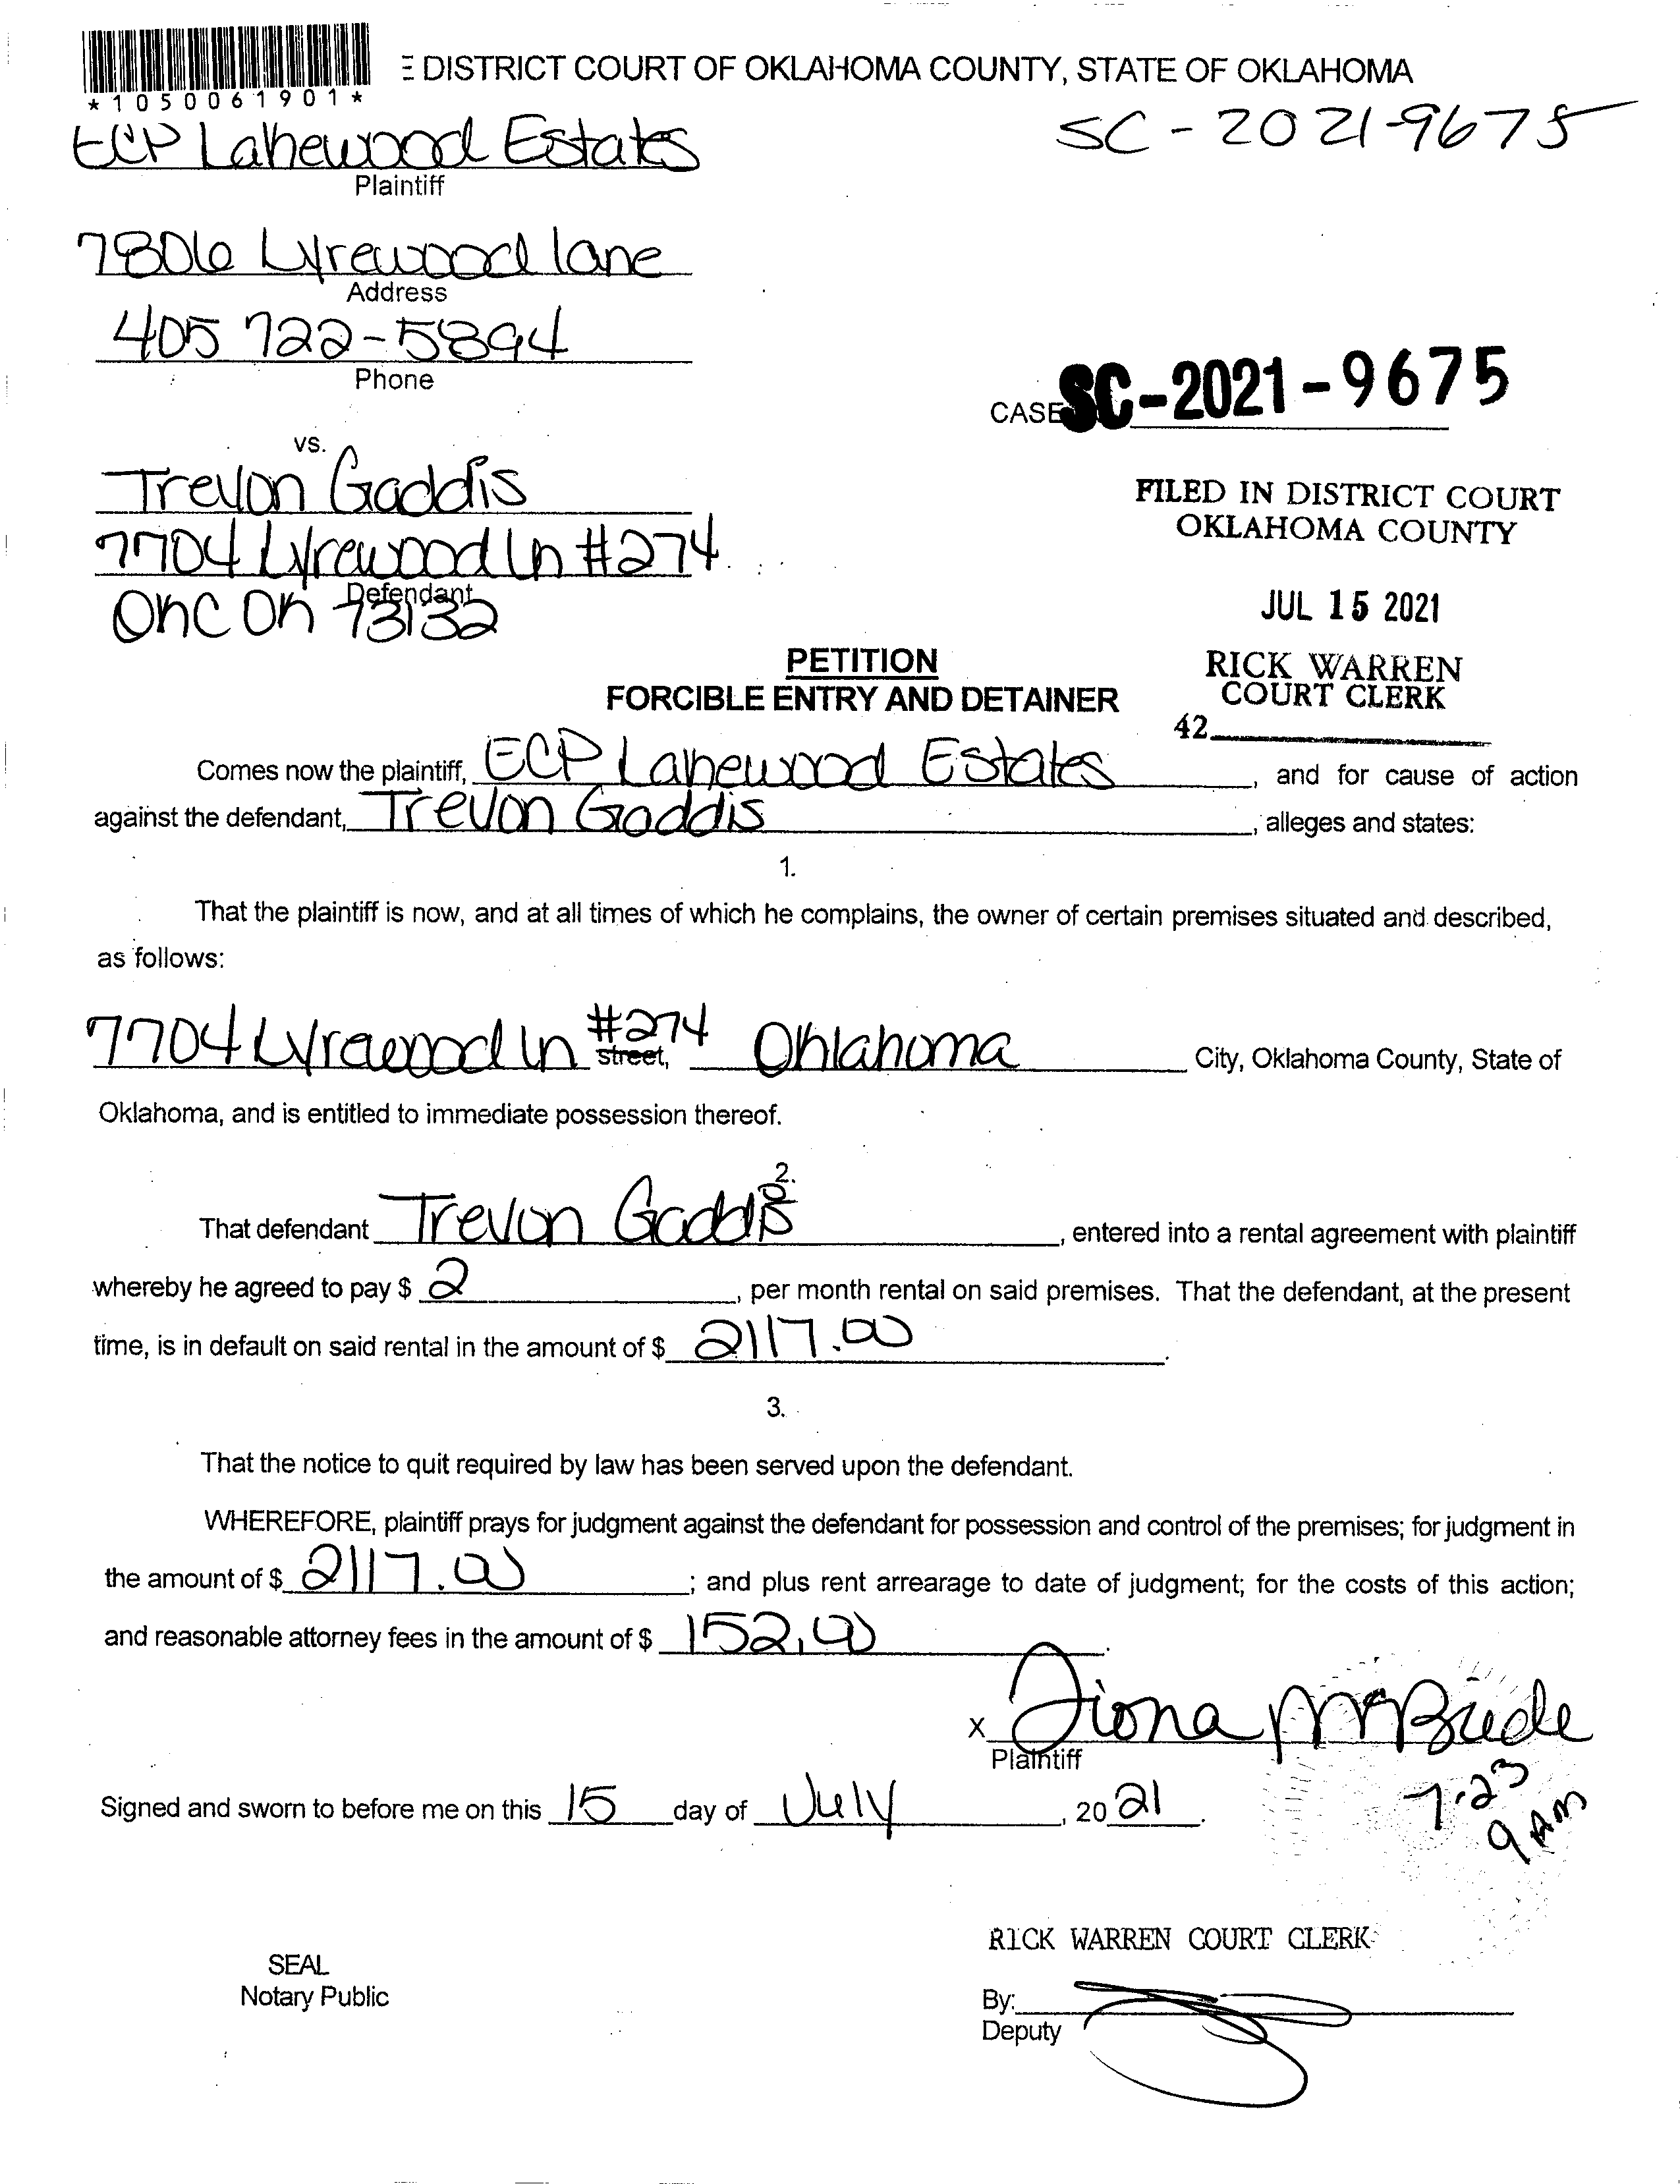 E DISTRICT COURT OF OKLAHOMA COUNTY, STATE OF OKLAHOMA
*1050061901*
ECP Lakewood Estates
SC-2021-9675
Plaintiff
7806 Lyrewood lane
Address
405 722-5894
Phone
CASE SC-2021-9675
vs.
Trevon Gaddis
7704 Lyrewood Ln #274
Defendant
OKC OK 73132
FILED IN DISTRICT COURT
OKLAHOMA COUNTY
JUL 15 2021
RICK WARREN
COURT CLERK
42
PETITION
FORCIBLE ENTRY AND DETAINER
Comes now the plaintiff, ECP Lakewood Estates, and for cause of action
against the defendant, Trevon Gaddis, alleges and states:
1.
That the plaintiff is now, and at all times of which he complains, the owner of certain premises situated and described,
as follows:
7704 Lyrewood Ln #274 street, Oklahoma City, Oklahoma County, State of
Oklahoma, and is entitled to immediate possession thereof.
2.
That defendant Trevon Gaddis, entered into a rental agreement with plaintiff
whereby he agreed to pay $ 2, per month rental on said premises. That the defendant, at the present
time, is in default on said rental in the amount of $ 2117.00.
3.
That the notice to quit required by law has been served upon the defendant.
WHEREFORE, plaintiff prays for judgment against the defendant for possession and control of the premises; for judgment in
the amount of $ 2117.00; and plus rent arrearage to date of judgment; for the costs of this action;
and reasonable attorney fees in the amount of $ 152.00.
X Fiona McBride
Plaintiff
Signed and sworn to before me on this 15 day of July, 2021.
7.23
9 AM
RICK WARREN COURT CLERK
SEAL
Notary Public
By:
Deputy